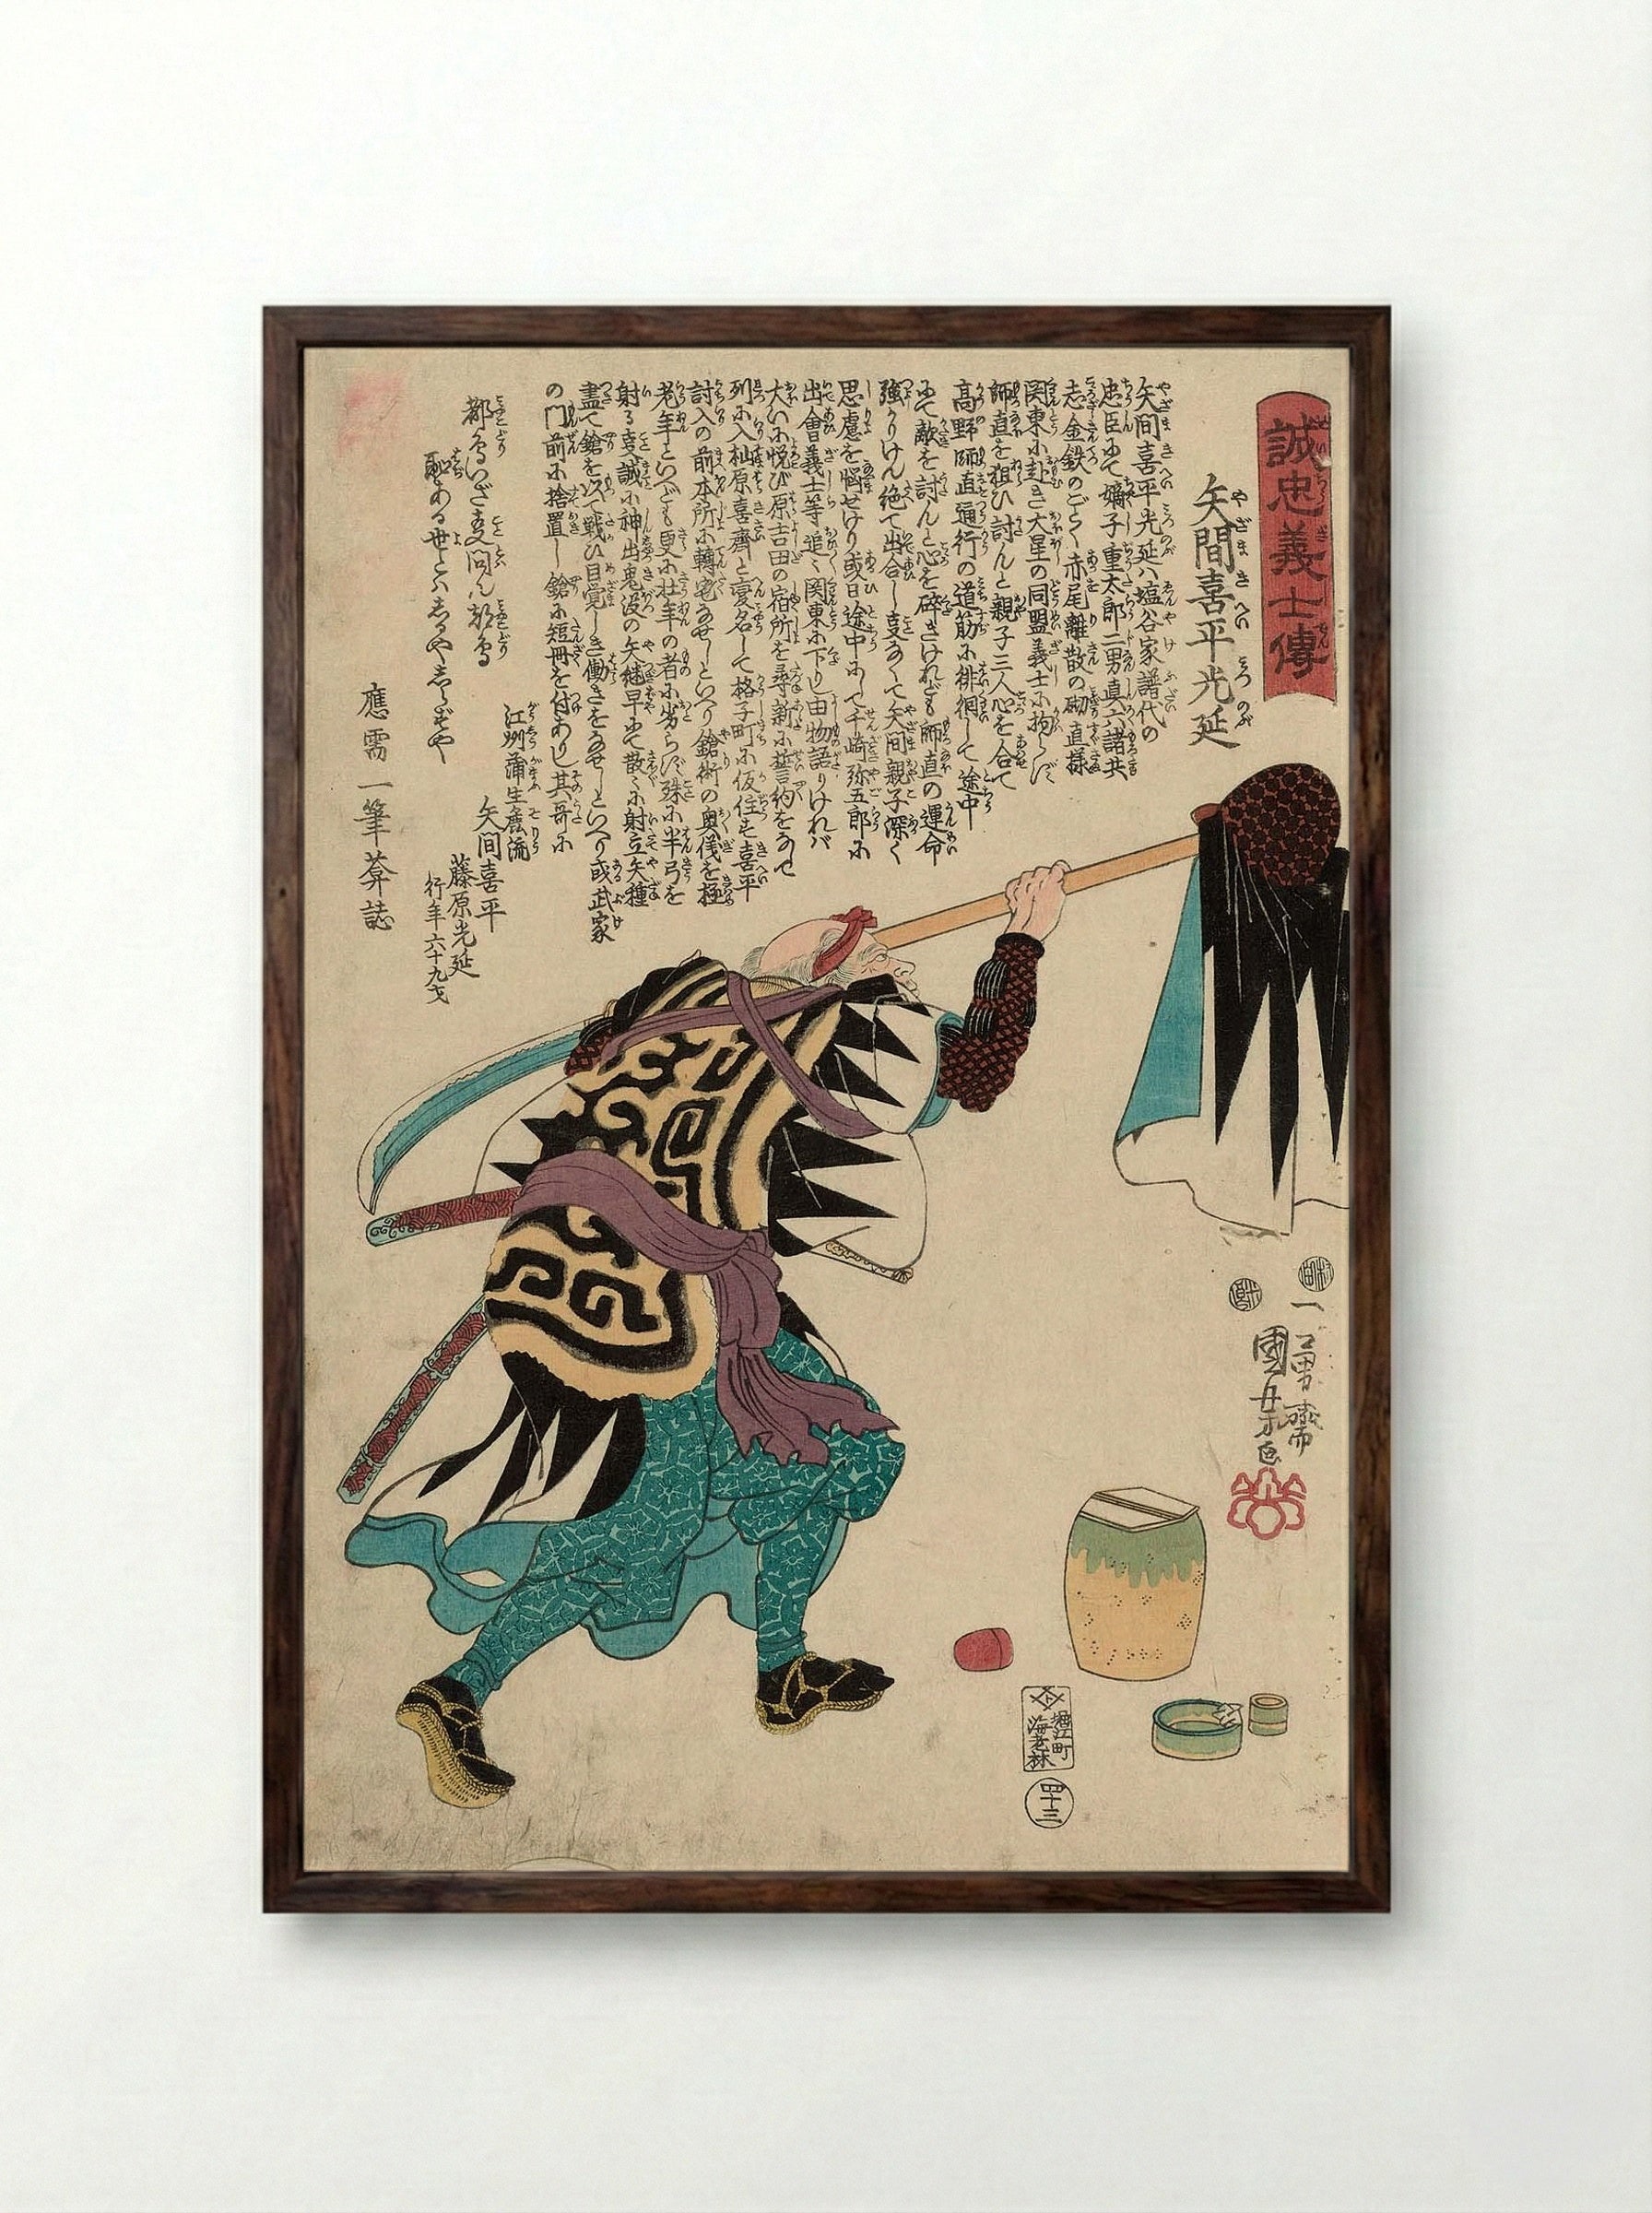 誠忠義士傳
矢間喜平光延
矢間喜平光延ハ塩谷家譜代の
忠臣にて嫡子重太郎二男真六諸共
志金鉄のごとく赤尾離散の砌直様
関東に赴き大星の同盟義士に拘らず
師直を狙ひ討んと親子三人心を合て
高野師直通行の道筋に徘徊して途中
にて敵を討んと心を碎きけれども師直の運命
強かりけん絶て出合し事なくて矢間親子深く
思慮を悩せけり或日途中にて千崎弥五郎に
出會義士等追々関東に下りし由物語りけれバ
大いに悦び原吉田の宿所を尋新に誓約をなして
列に入杣原喜齊と変名して格子町に仮住す喜平
討入の前本所に轉宅なせしといへり鎗術の奥儀を極
老年といへども更に壮年の者に劣らず殊に半弓を
射る事誠に神出鬼没の矢継早にて散々に射立矢種
盡て鎗を以て戦ひ目覚しき働きをなせしといへり或武家
の門前に捨置し鎗に短冊を付ありし其哥に
都鳥いざ事問ん都鳥
耻ある世とハしるやしらずや
江州蒲生庶流
矢間喜平
藤原光延
行年六十九才
應需一筆葊誌
一勇齋
國芳画
堀江町
海老林
四十三